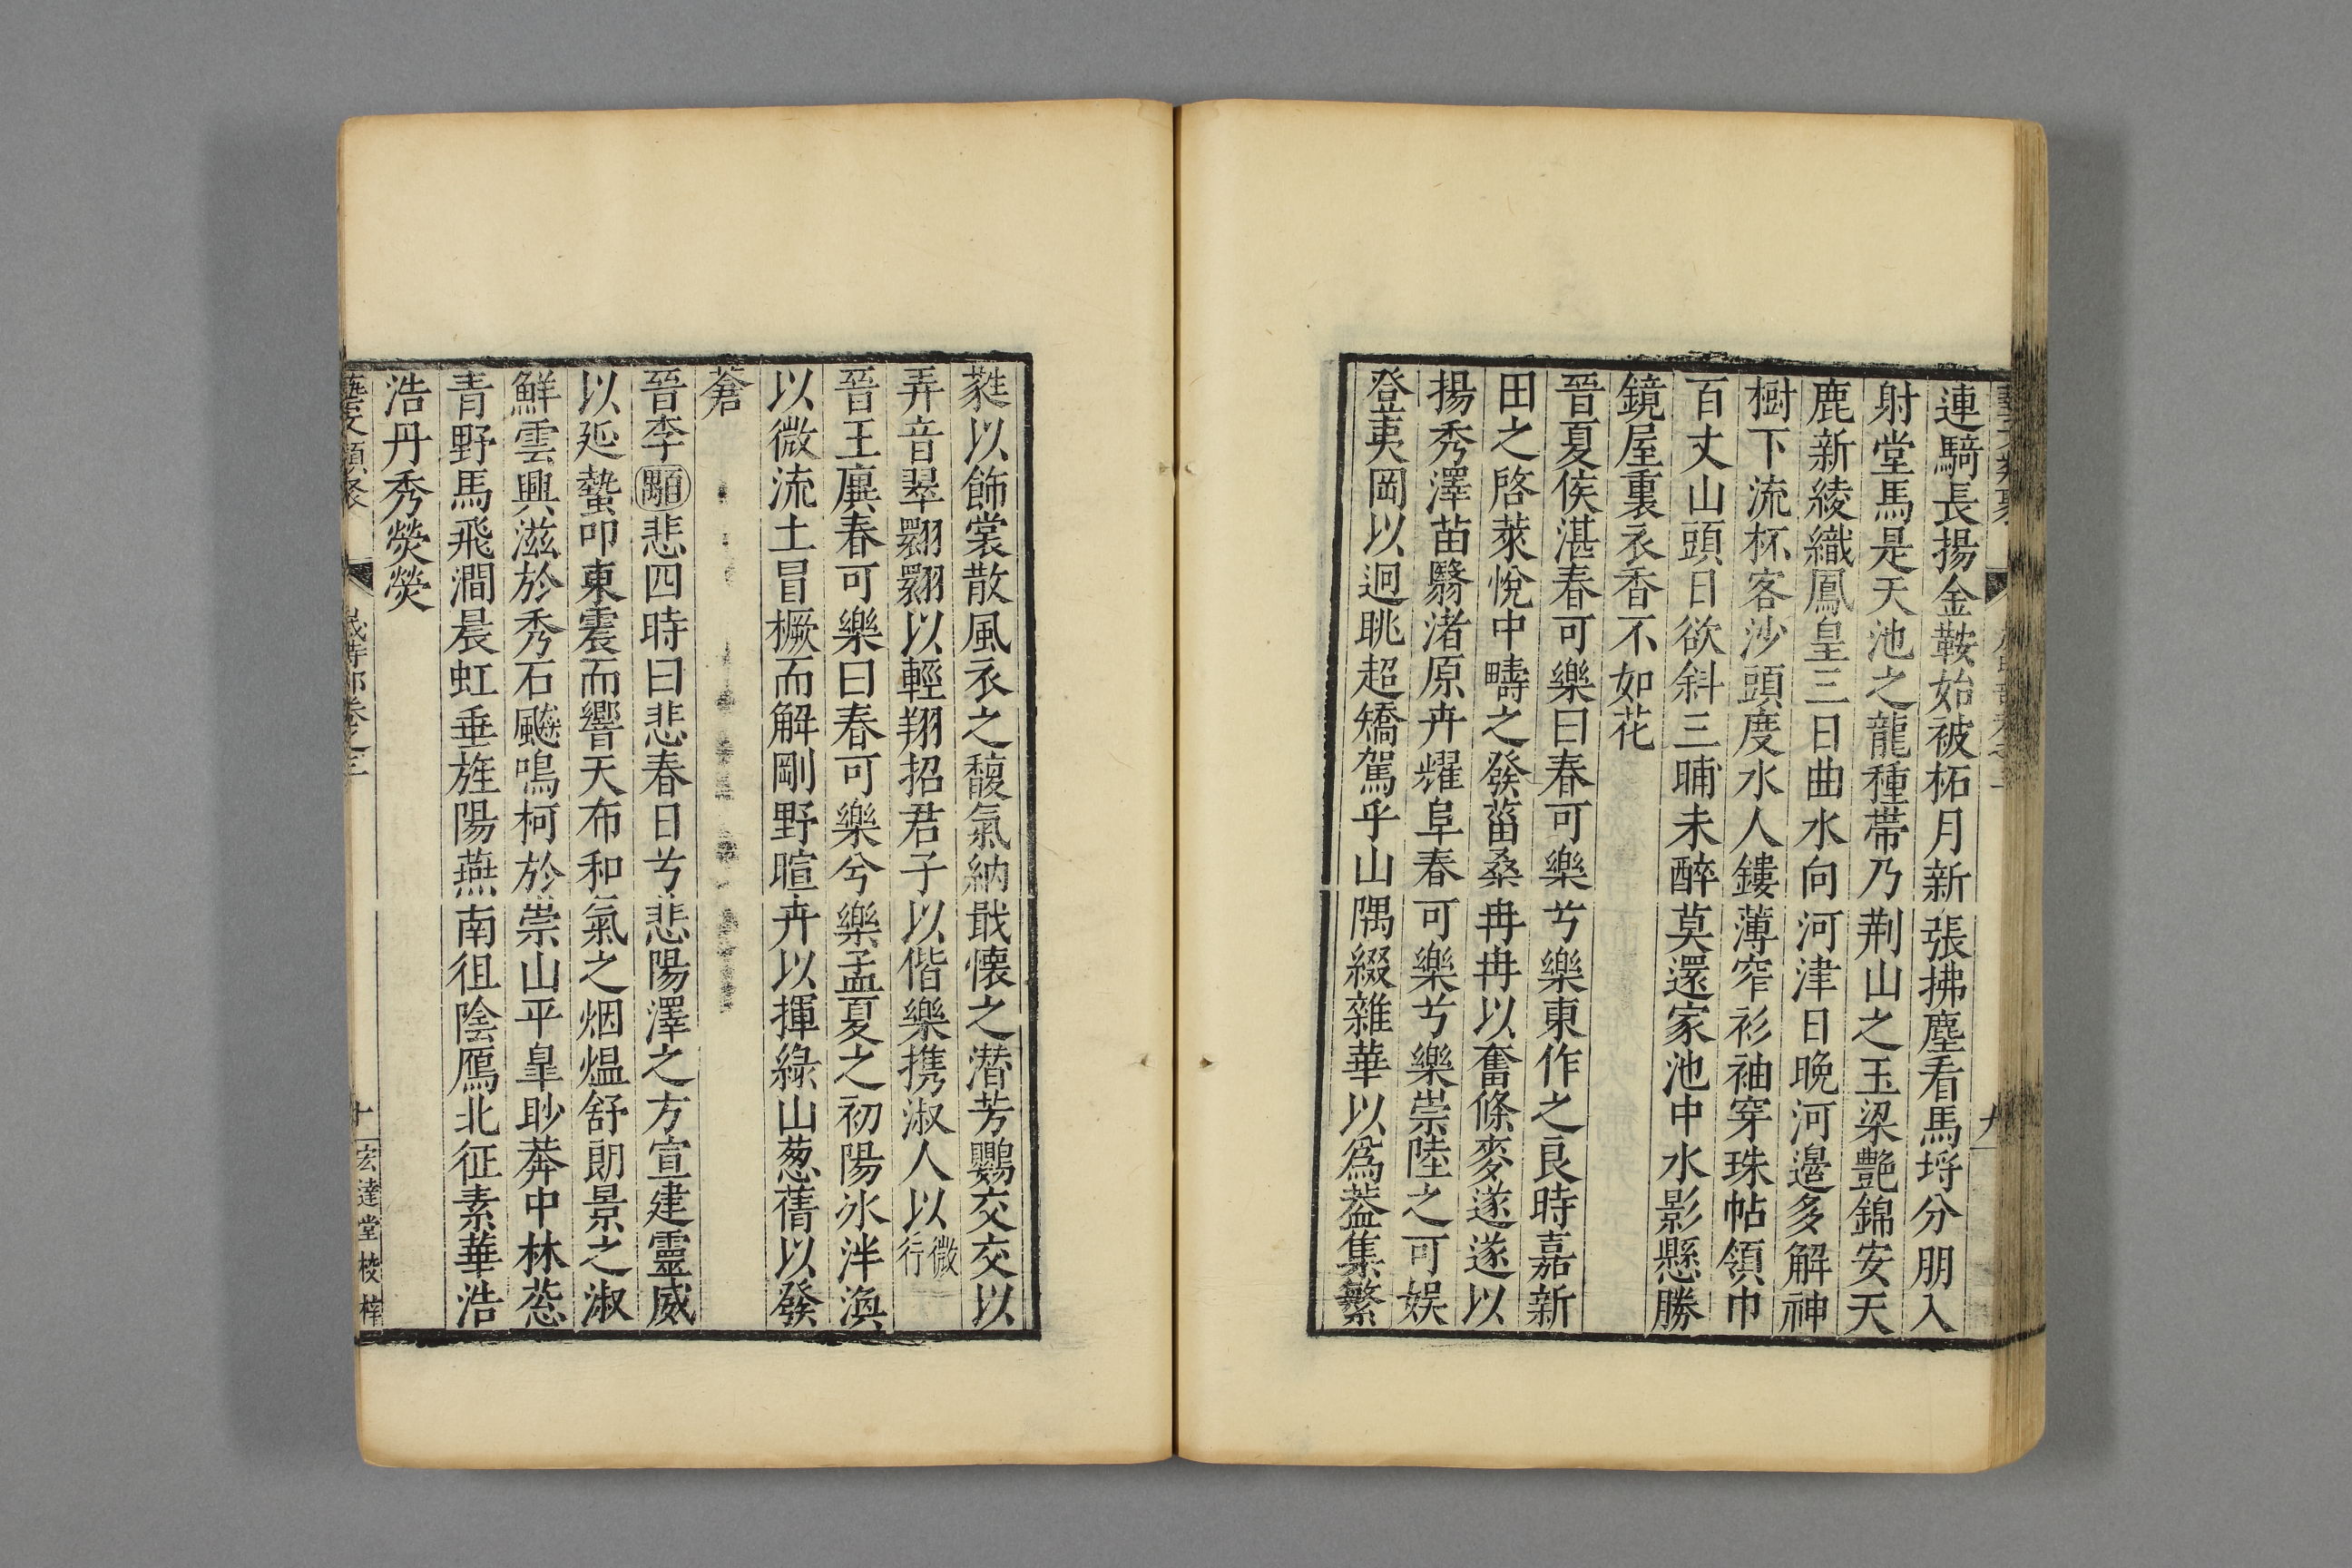 連騎長揚金鞍始被柘月新張拂塵看馬埒分朋入
射堂馬是天池之龍種帶乃荆山之玉梁艷錦安天
鹿新綾織鳳皇三日曲水向河津日晚河邊多解神
樹下流杯客沙頭度水人鏤薄窄衫袖穿珠帖領巾
百丈山頭日欲斜三晡未醉莫還家池中水影懸勝
鏡屋裏衣香不如花
晉夏侯湛春可樂曰春可樂兮樂東作之良時嘉新
田之啓萊悅中疇之發菑桑冉冉以奮條麥遂遂以
揚秀澤苗翳渚原卉耀阜春可樂兮樂崇陸之可娱
登夷岡以迥眺超矯駕乎山隅綴雜華以爲葢集繁
蕤以飾裳散風衣之馥氣納戢懐之潜芳鸚交交以
弄音翠翾翾以輕翔招君子以偕樂携淑人以微行
晉王廙春可樂曰春可樂兮樂孟夏之初陽氷泮渙
以微流土冒橛而解剛野暄卉以揮綠山葱蒨以發
蒼
晉李顒悲四時曰悲春日兮悲陽澤之方宣建靈威
以延蟄叩東震而響天布和氣之烟煴舒朗景之淑
鮮雲興滋於秀石飈鳴柯於崇山平皐眇莽中林葱
青野馬飛澗晨虹垂旌陽燕南徂陰鴈北征素華浩
浩丹秀熒熒
十 宏達堂校梓